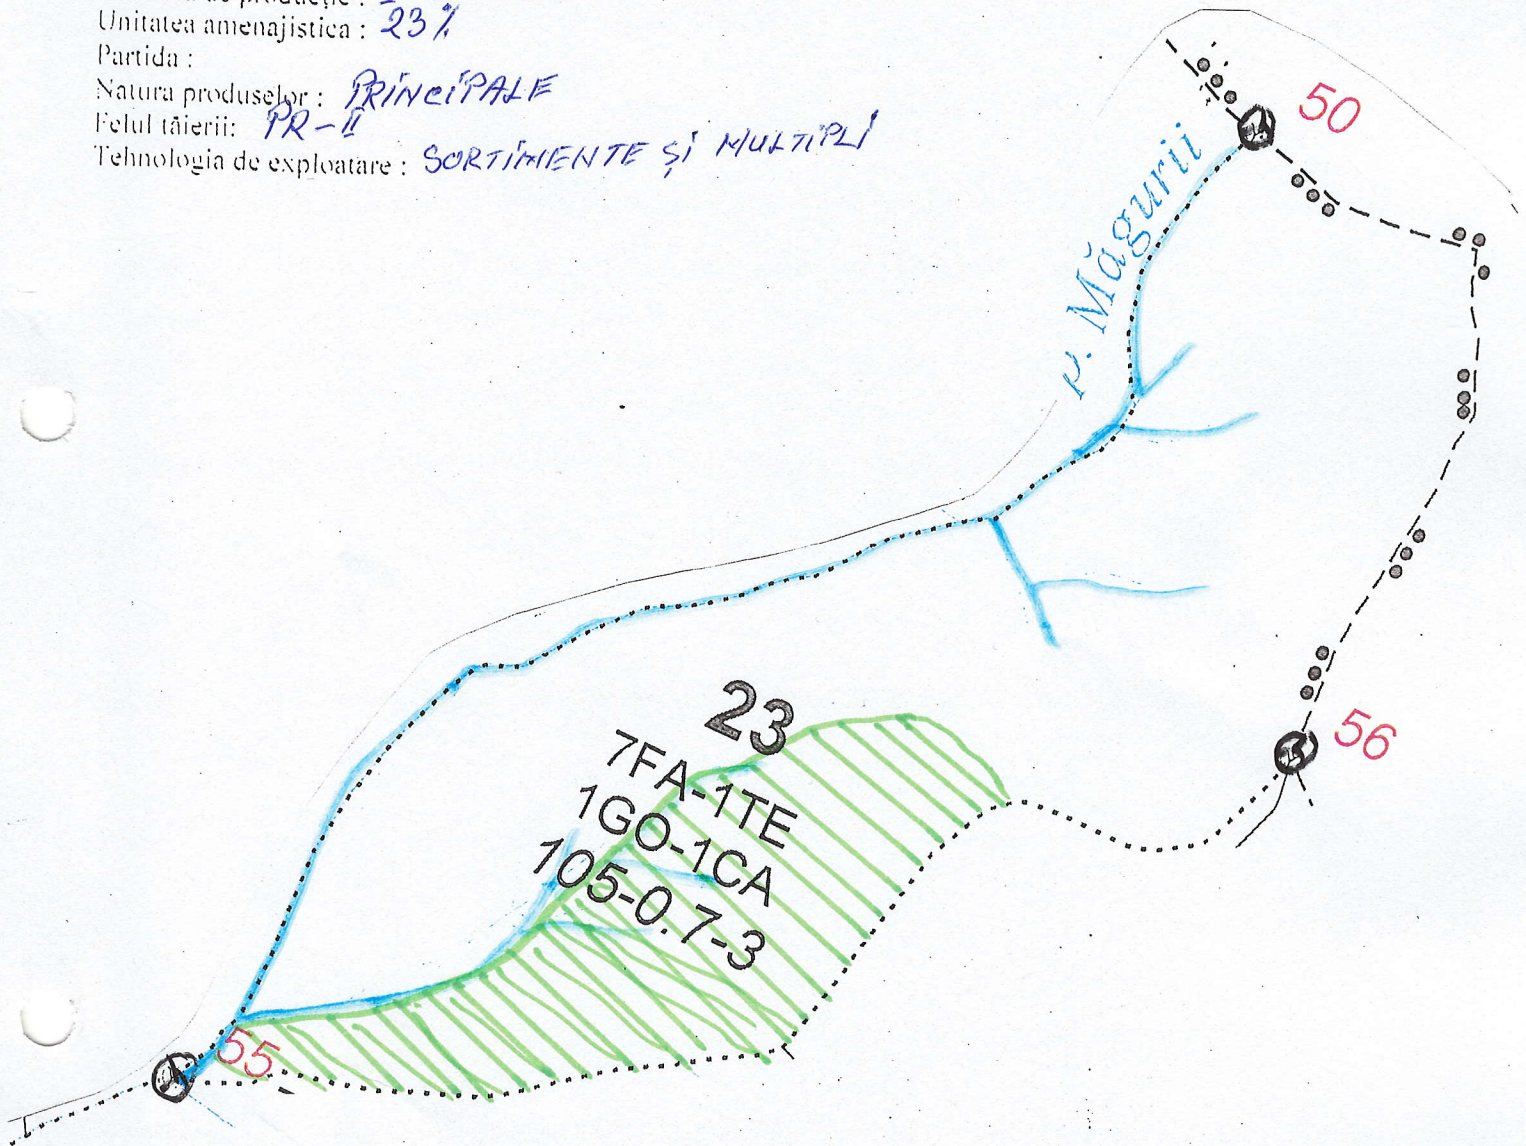 de producție :
Unitatea amenajistica : 23%
Partida :
Natura produselor : PRINCIPALE
Felul tăierii: PR-II
Tehnologia de exploatare : SORTIMENTE ȘI MULTIPLI
50
p. Măgurii
56
23
7FA-1TE
1GO-1CA
105-0.7-3
55